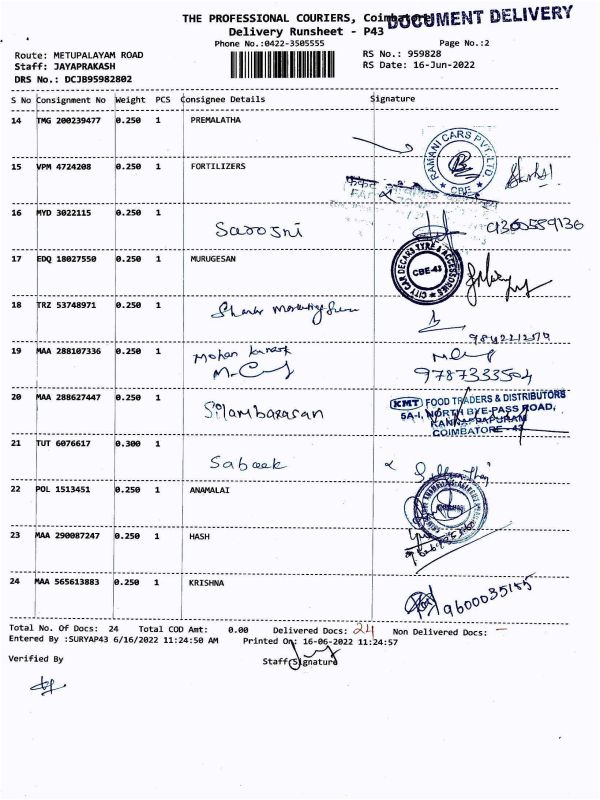 THE PROFESSIONAL COURIERS, Coimbatore
DOCUMENT DELIVERY
Delivery Runsheet - P43
Phone No.:0422-3505555
Page No.:2
Route: METUPALAYAM ROAD
RS No.: 959828
Staff: JAYAPRAKASH
RS Date: 16-Jun-2022
DRS No.: DCJB95982802
S No Consignment No Weight PCS Consignee Details Signature
14 TMG 200239477 0.250 1 PREMALATHA
RAMANI CARS PVT. LTD
CBE
15 VPM 4724208 0.250 1 FORTILIZERS
16 MYD 3022115 0.250 1
Sarojni
9360559136
17 EDQ 18027550 0.250 1 MURUGESAN
CITY CAR DECARS TYRE & ACCESSORIES
CBE-43
18 TRZ 53748971 0.250 1
19 MAA 288107336 0.250 1
Mohan kumar
9787333504
20 MAA 288627447 0.250 1
Silambarasan
KMT FOOD TRADERS & DISTRIBUTORS
5A-I, NORTH BYE-PASS ROAD,
KANNAPPAPURAM
COIMBATORE - 43
21 TUT 6076617 0.300 1
Sabeek
22 POL 1513451 0.250 1 ANAMALAI
23 MAA 290087247 0.250 1 HASH
24 MAA 565613883 0.250 1 KRISHNA
9600035155
Total No. Of Docs: 24 Total COD Amt: 0.00 Delivered Docs: 24 Non Delivered Docs: -
Entered By :SURYAP43 6/16/2022 11:24:50 AM Printed On: 16-06-2022 11:24:57
Verified By
Staff Signature